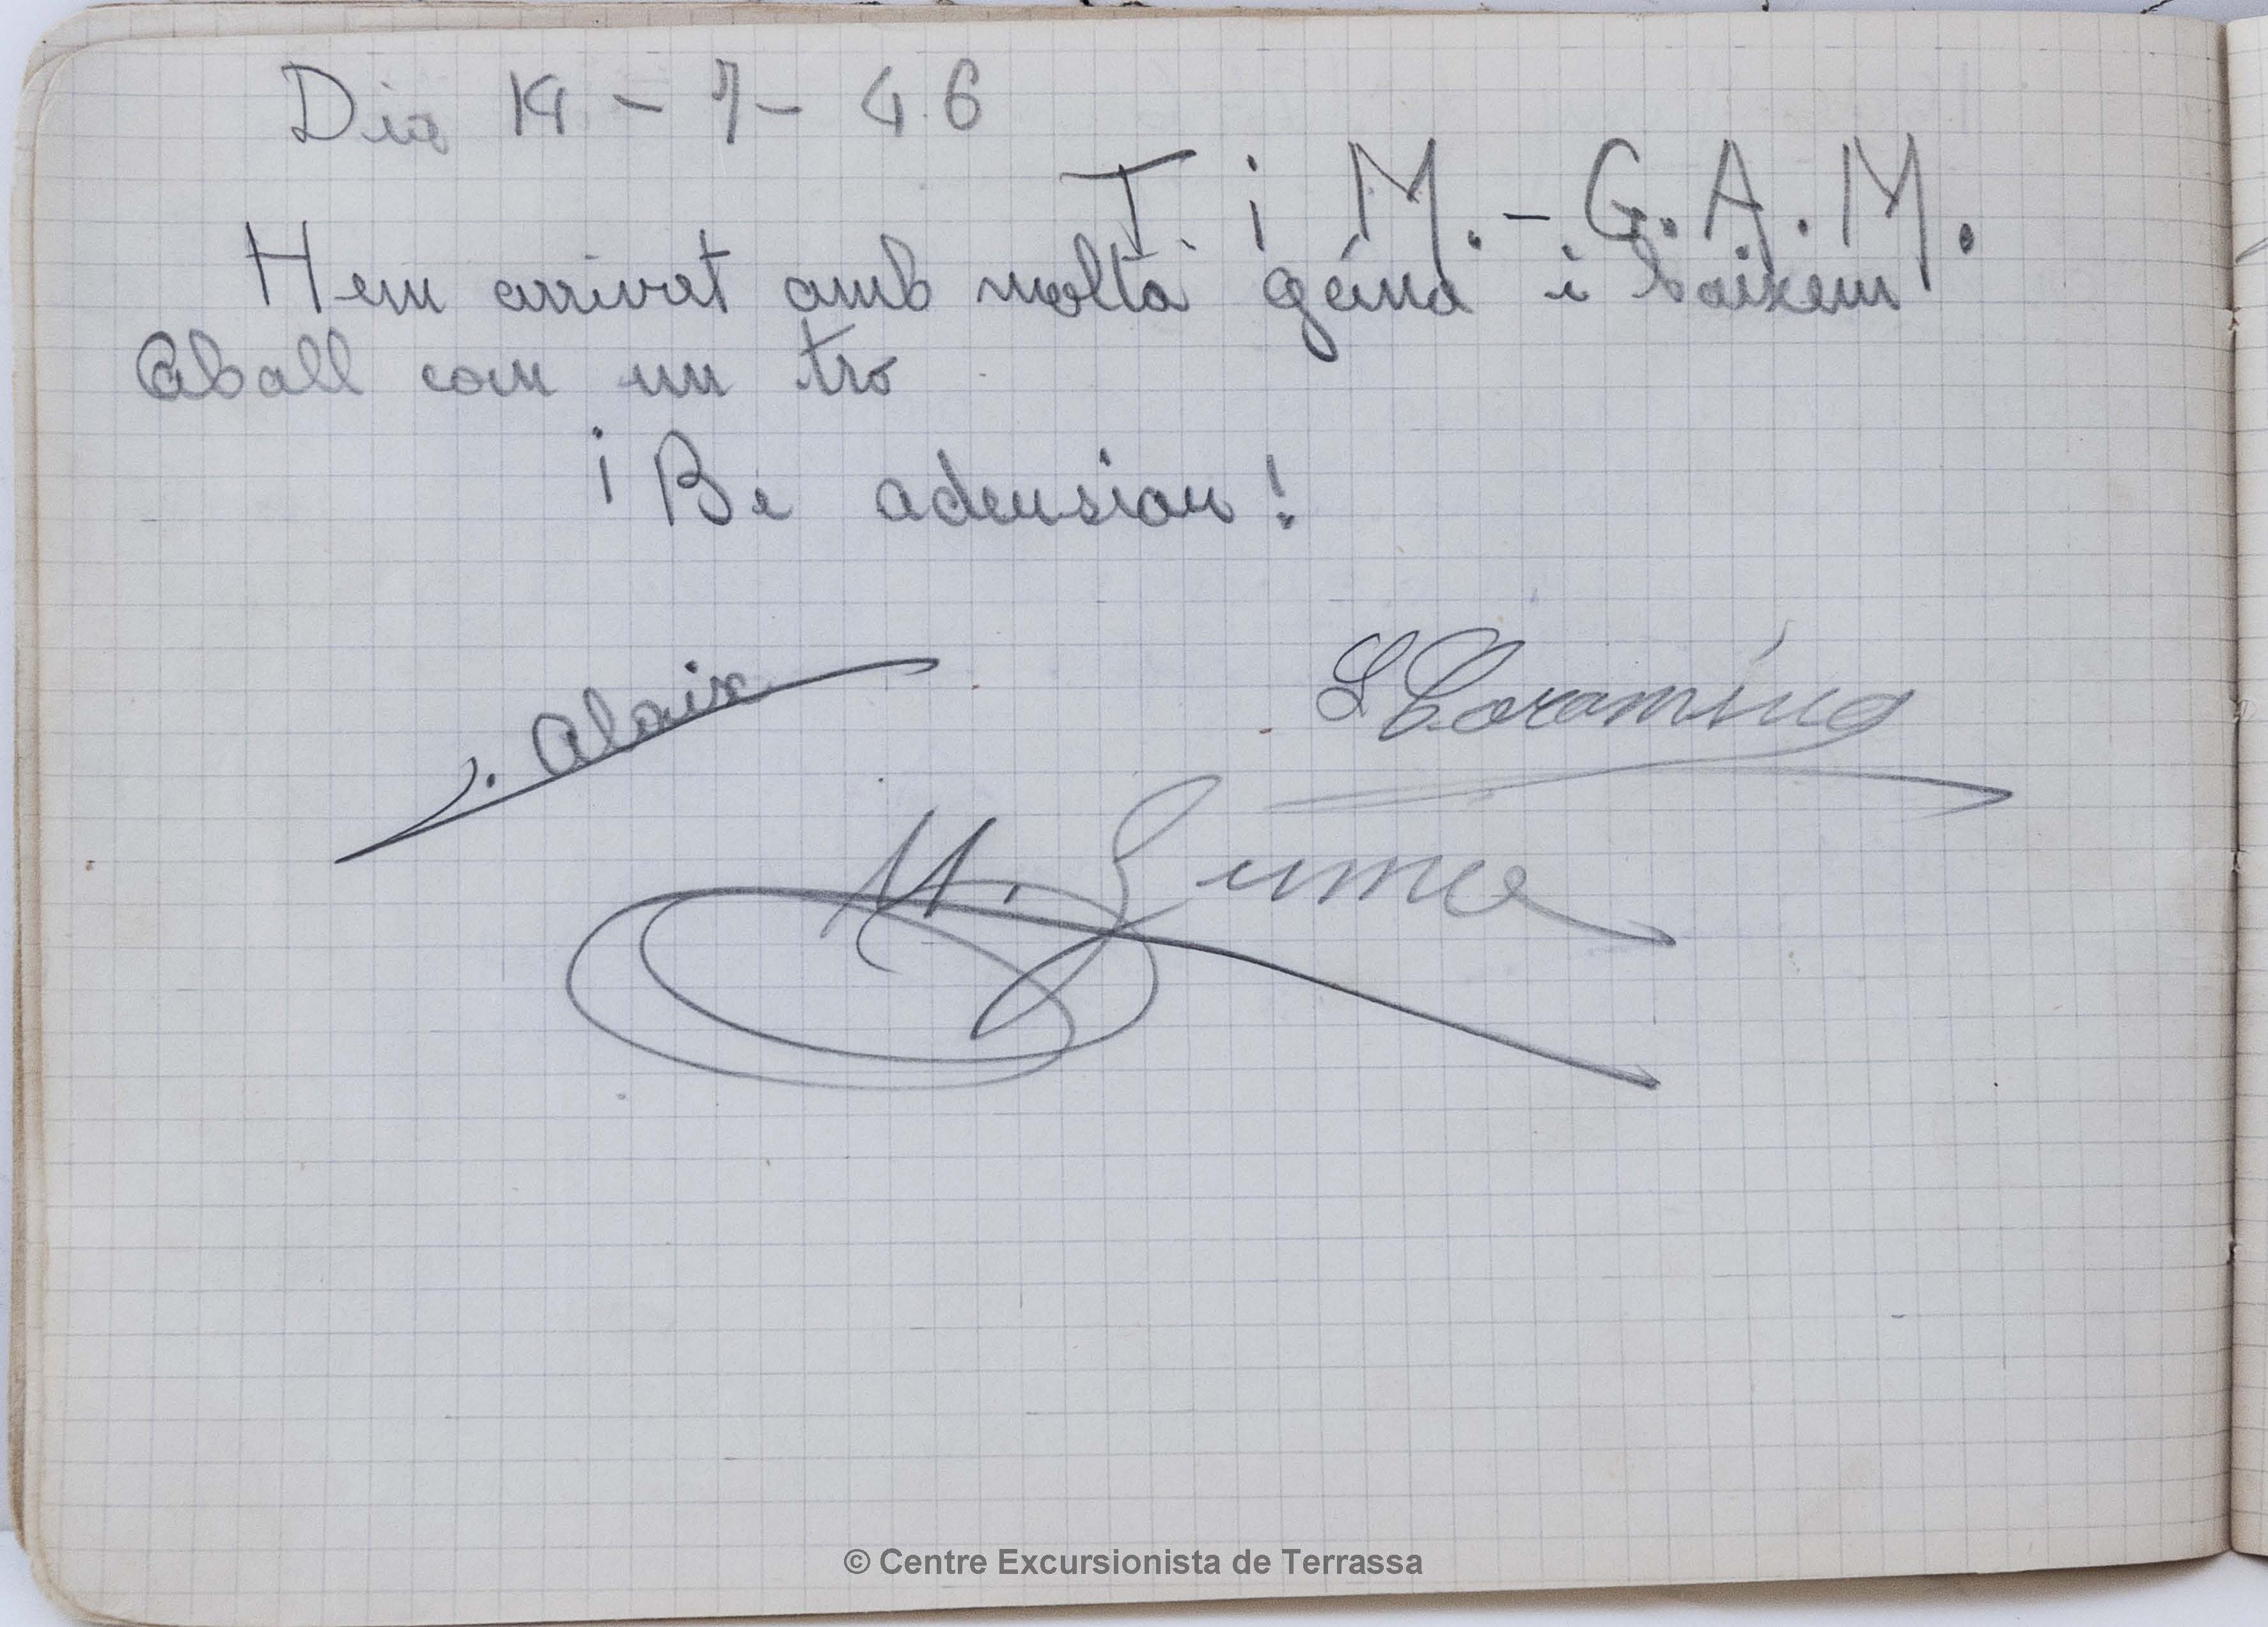 Dia 14 - 7 - 46
T i M. - G. A. M.
Hem arrivat amb molta gana i baixem
aball com un tro
¡ Be adeusiau !
J. Alaix
Coromina
M.
© Centre Excursionista de Terrassa